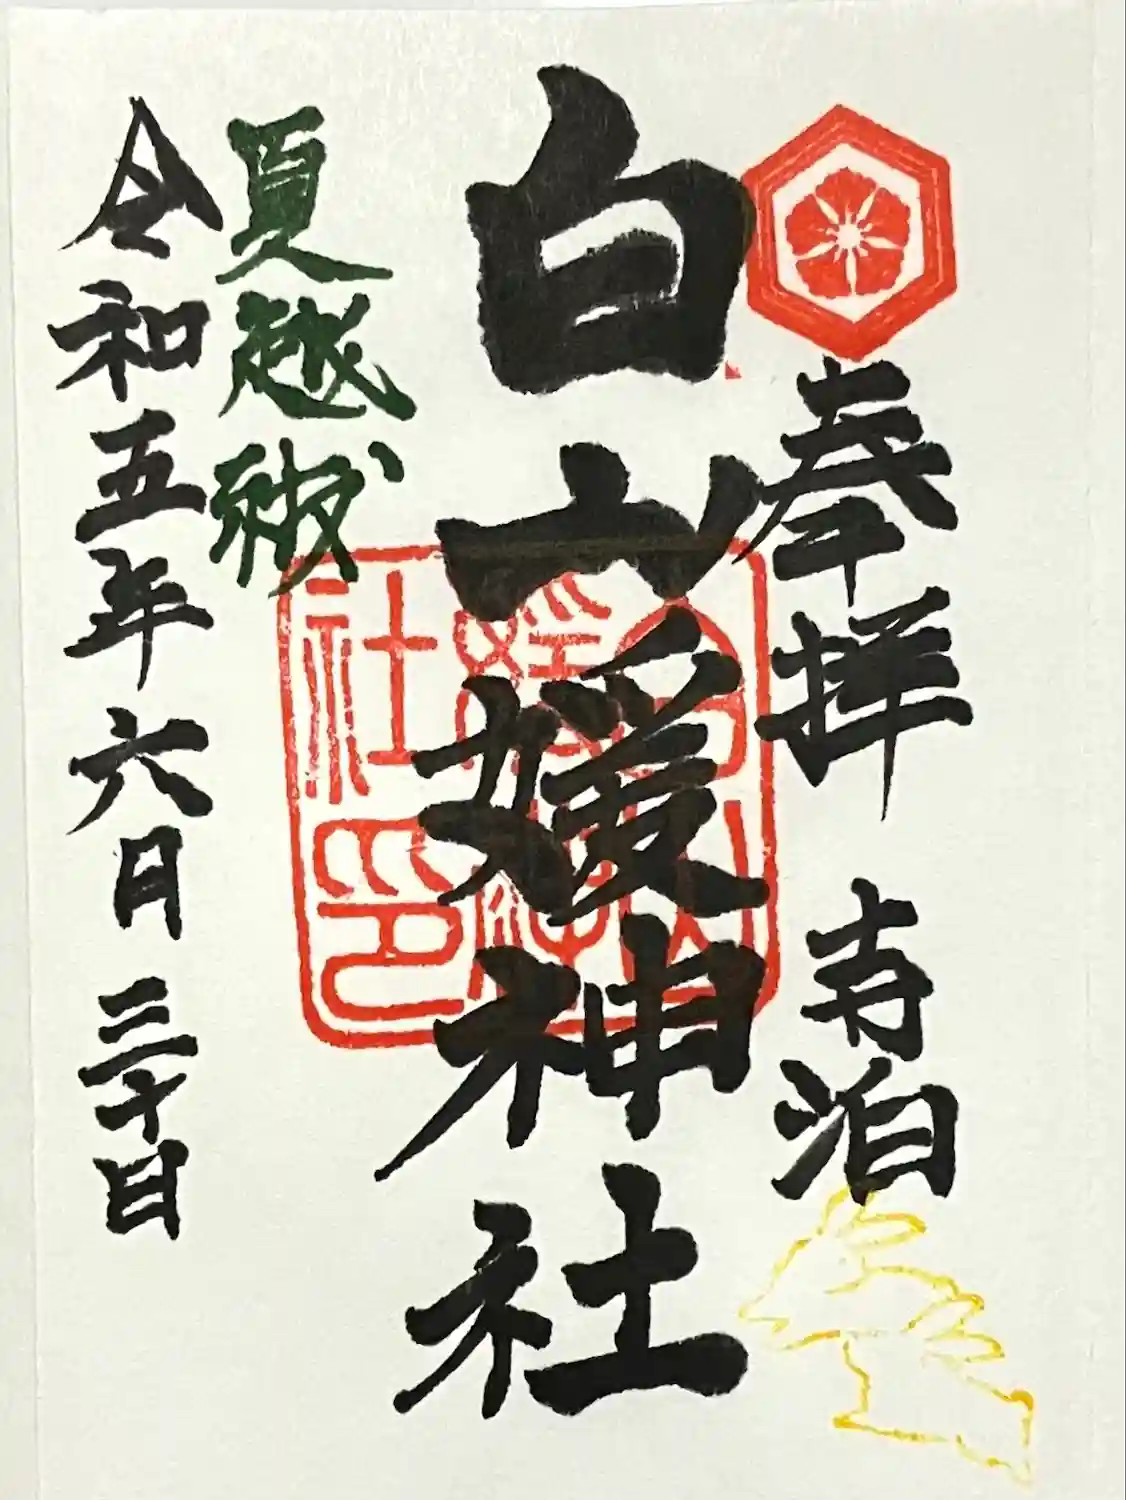 奉拝 寺泊
白山媛神社
白山媛神社印
夏越祓
令和五年六月三十日